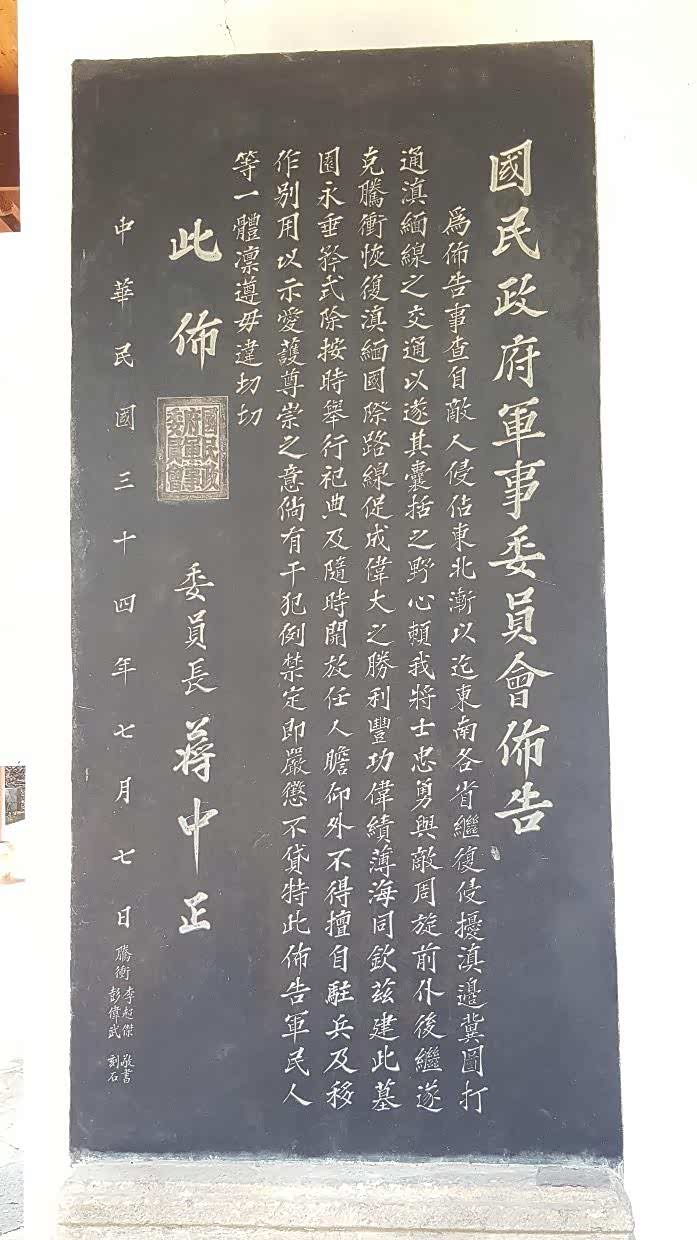 國民政府軍事委員會佈告
為佈告事查自敵人侵佔東北漸以迄東南各省繼復侵擾滇邊冀圖打
通滇緬線之交通以遂其囊括之野心賴我將士忠勇與敵周旋前仆後繼遂
克騰衝恢復滇緬國際路線促成偉大之勝利豐功偉績薄海同欽茲建此墓
園永垂矜式除按時舉行祀典及隨時開放任人瞻仰外不得擅自駐兵及移
作別用以示愛護尊崇之意倘有干犯例禁定即嚴懲不貸特此佈告軍民人
等一體凛遵毋違切切
此佈
國民政府軍事委員會
委員長 蔣中正
中華民國三十四年七月七日
騰衝 李起傑 敬書
彭偉武 刻石